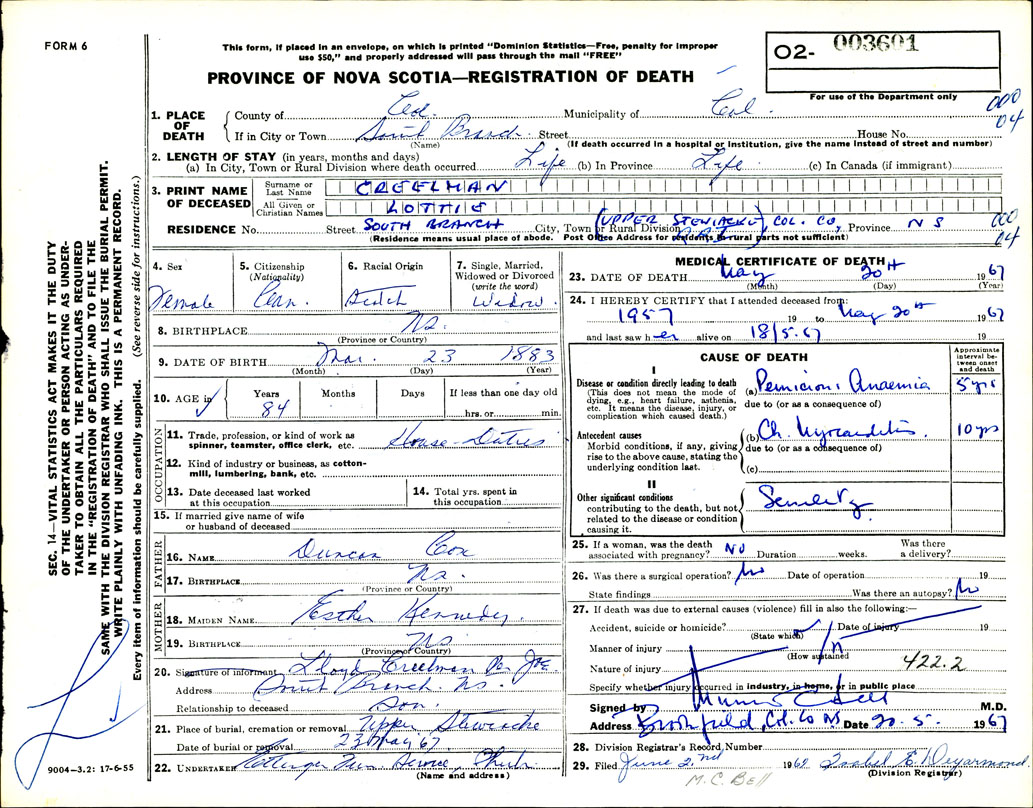 FORM 6
This form, if placed in an envelope, on which is printed "Dominion Statistics—Free, penalty for improper
use $50," and properly addressed will pass through the mail "FREE"
O2- 003601
PROVINCE OF NOVA SCOTIA—REGISTRATION OF DEATH
For use of the Department only
000
04
1. PLACE OF DEATH
County of Col. Municipality of Col.
If in City or Town South Branch Street House No.
(Name) (If death occurred in a hospital or institution, give the name instead of street and number)
2. LENGTH OF STAY (in years, months and days)
(a) In City, Town or Rural Division where death occurred Life (b) In Province Life (c) In Canada (if immigrant)
3. PRINT NAME OF DECEASED
Surname or Last Name CREELMAN
All Given or Christian Names LOTTIE
RESIDENCE No. Street SOUTH BRANCH City, Town or Rural Division (UPPER STEWIACKE) COL. CO, Province N S
R.R.1
000
04
(Residence means usual place of abode. Post Office Address for residents in rural parts not sufficient)
4. Sex
Female
5. Citizenship
(Nationality)
Can.
6. Racial Origin
Scotch
7. Single, Married,
Widowed or Divorced
(write the word)
Widow.
8. BIRTHPLACE Ns.
(Province or Country)
9. DATE OF BIRTH Mar. 23 1883
(Month) (Day) (Year)
10. AGE in
Years 84
Months
Days
If less than one day old
hrs. or min.
OCCUPATION
11. Trade, profession, or kind of work as
spinner, teamster, office clerk, etc. House-Duties
12. Kind of industry or business, as cotton-
mill, lumbering, bank, etc.
13. Date deceased last worked
at this occupation
14. Total yrs. spent in
this occupation
15. If married give name of wife
or husband of deceased
FATHER
16. NAME Duncan Cox
17. BIRTHPLACE Ns.
(Province or Country)
MOTHER
18. MAIDEN NAME Esther Kennedy
19. BIRTHPLACE Ns
(Province or Country)
20. Signature of informant Lloyd Creelman Per JOE
Address South Branch. Ns.
Relationship to deceased Son.
21. Place of burial, cremation or removal Upper Stewiacke
Date of burial or removal 23 May 67.
22. UNDERTAKER
(Name and address)
MEDICAL CERTIFICATE OF DEATH
23. DATE OF DEATH May 20th 1967
(Month) (Day) (Year)
24. I HEREBY CERTIFY that I attended deceased from:
1957 19 to May 20th 1967
and last saw her alive on 18/5.67
CAUSE OF DEATH
Approximate interval between onset and death
I
Disease or condition directly leading to death
(This does not mean the mode of
dying, e.g., heart failure, asthenia,
etc. It means the disease, injury, or
complication which caused death.)
(a) Pernicious Anaemia 5 yrs
due to (or as a consequence of)
Antecedent causes
Morbid conditions, if any, giving
rise to the above cause, stating the
underlying condition last.
(b) Ch. Myocarditis. 10 yrs
due to (or as a consequence of)
(c)
II
Other significant conditions
contributing to the death, but not
related to the disease or condition
causing it.
Senility
25. If a woman, was the death
associated with pregnancy? NO Duration weeks. Was there
a delivery?
26. Was there a surgical operation? No Date of operation 19
State findings Was there an autopsy? No
27. If death was due to external causes (violence) fill in also the following:—
Accident, suicide or homicide? Date of injury 19
(State which)
Manner of injury
(How sustained)
Nature of injury
422.2
Specify whether injury occurred in industry, in home, or in public place
Signed by M.D.
Address Brookfield, Col. Co NS Date 20. 5. 1967
28. Division Registrar's Record Number
29. Filed June 2nd 1962 Isabel E. Deyarmond
(Division Registrar)
M.C. Bell
9004—3.2: 17-6-55
SEC. 14—VITAL STATISTICS ACT MAKES IT THE DUTY
OF THE UNDERTAKER OR PERSON ACTING AS UNDER-
TAKER TO OBTAIN ALL THE PARTICULARS REQUIRED
IN THE "REGISTRATION OF DEATH" AND TO FILE THE
SAME WITH THE DIVISION REGISTRAR WHO SHALL ISSUE THE BURIAL PERMIT.
WRITE PLAINLY WITH UNFADING INK. THIS IS A PERMANENT RECORD.
Every item of information should be carefully supplied. (See reverse side for instructions.)